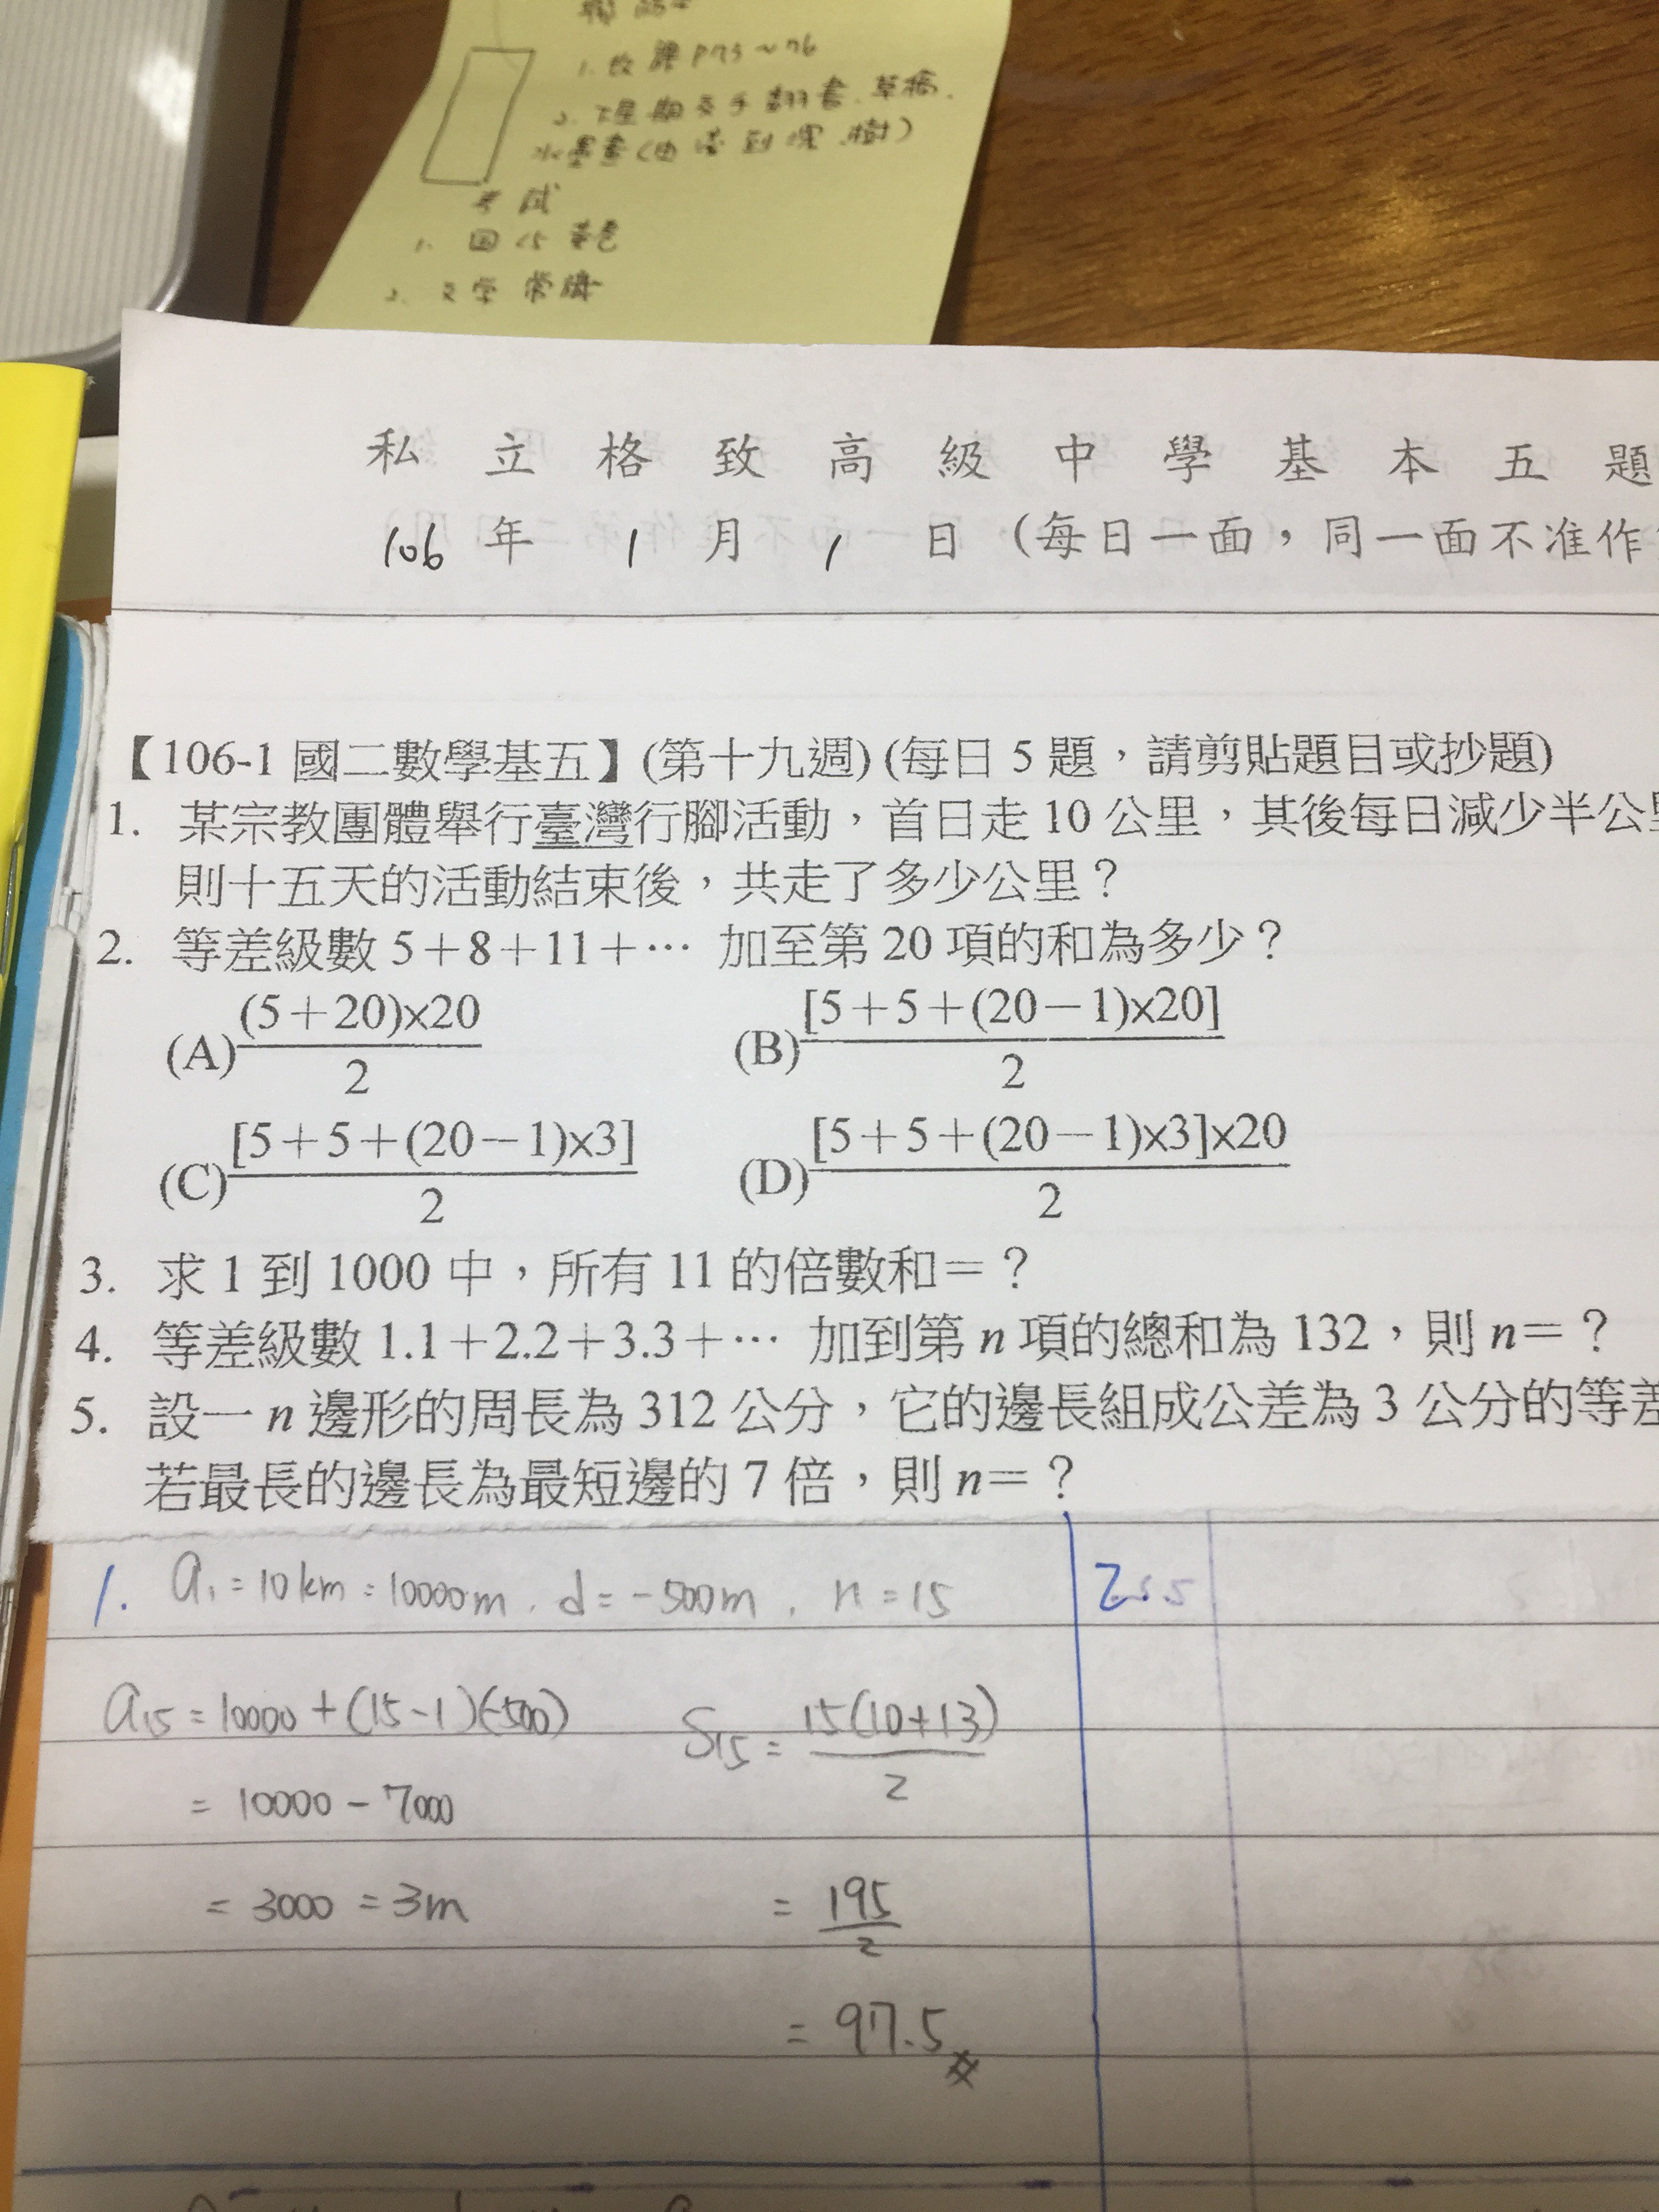 1. 改課P75~76
考試
2. 文學常識
私立格致高級中學基本五題
106年1月1日(每日一面，同一面不准作
【106-1國二數學基五】(第十九週)(每日5題，請剪貼題目或抄題)
1. 某宗教團體舉行臺灣行腳活動，首日走10公里，其後每日減少半公里
則十五天的活動結束後，共走了多少公里？
2. 等差級數5＋8＋11＋… 加至第20項的和為多少？
(A) (5＋20)×20 / 2 (B) [5＋5＋(20－1)×20] / 2
(C) [5＋5＋(20－1)×3] / 2 (D) [5＋5＋(20－1)×3]×20 / 2
3. 求1到1000中，所有11的倍數和＝？
4. 等差級數1.1＋2.2＋3.3＋… 加到第n項的總和為132，則n＝？
5. 設一n邊形的周長為312公分，它的邊長組成公差為3公分的等差
若最長的邊長為最短邊的7倍，則n＝？
1. a1=10km=10000m, d=-500m, n=15
a15=10000+(15-1)(-500)
=10000-7000
=3000=3m
S15= 15(10+13) / 2
= 195 / 2
=97.5